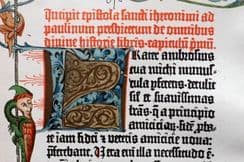 Incipit epistola sancti iheronimi ad
paulinum presbiterum de omnibus
divine historie libris·capitulū p̄mū.
FRater ambrosius
tua michi munus-
cula ꝑferens·detulit
sil' et suauissimas
lr̄as·q̄ a principio
amiciciaꝝ·fidē ꝓba-
te iam fidei et veteris amicicie noua
Vera eni illa necessitudo ē